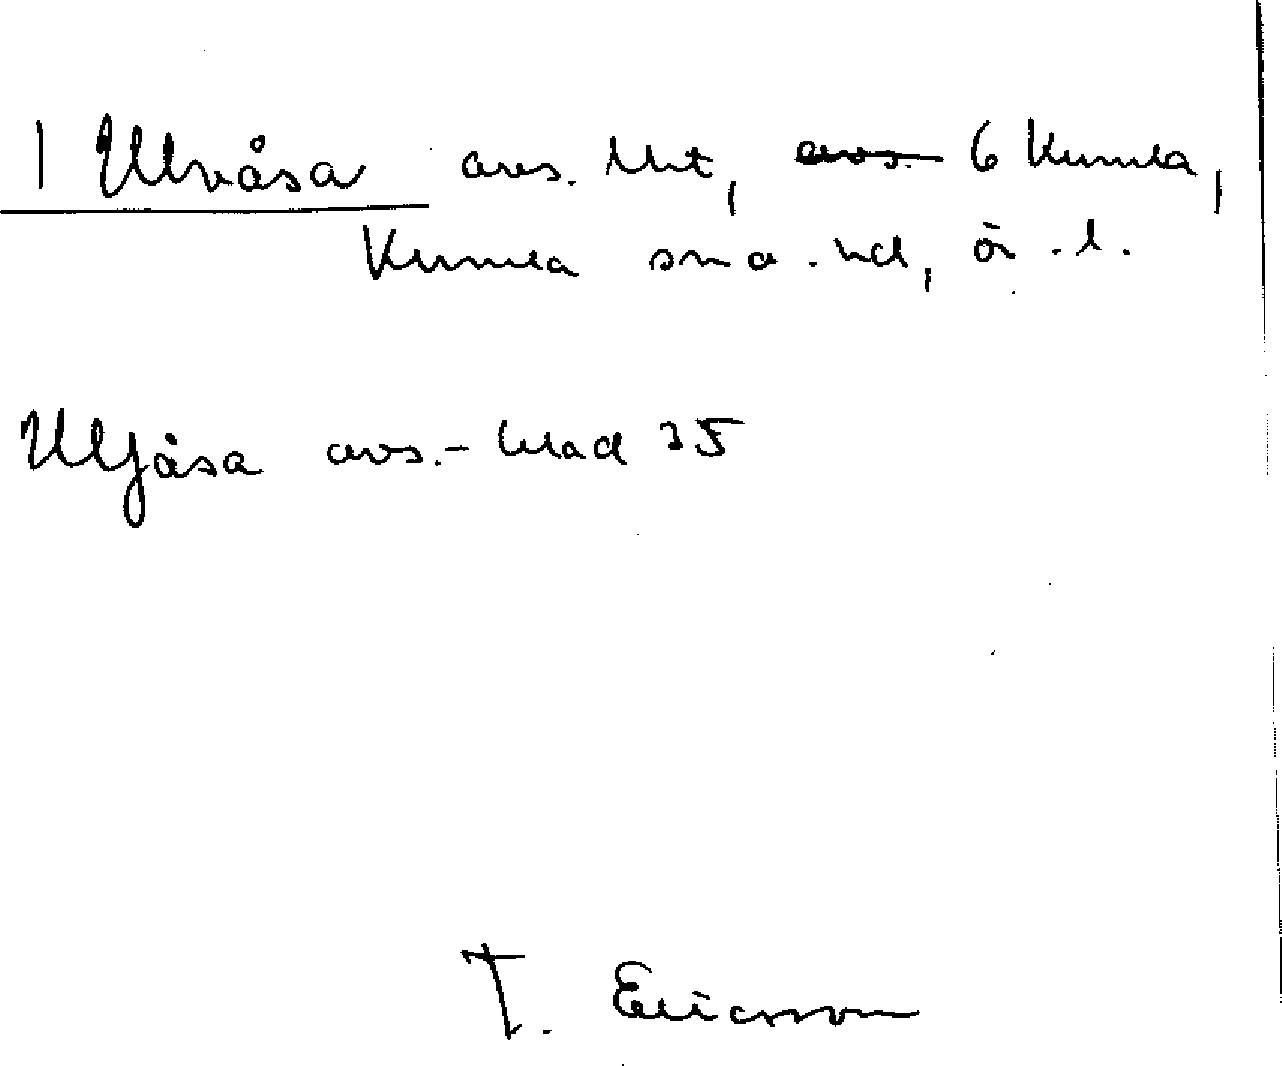 1 Ulvåsa avs. lht, avs. 6 Kumla,
Kumla sn o. hd, ör. l.
Uljåsa avs. - blad 35
T. Ericsson